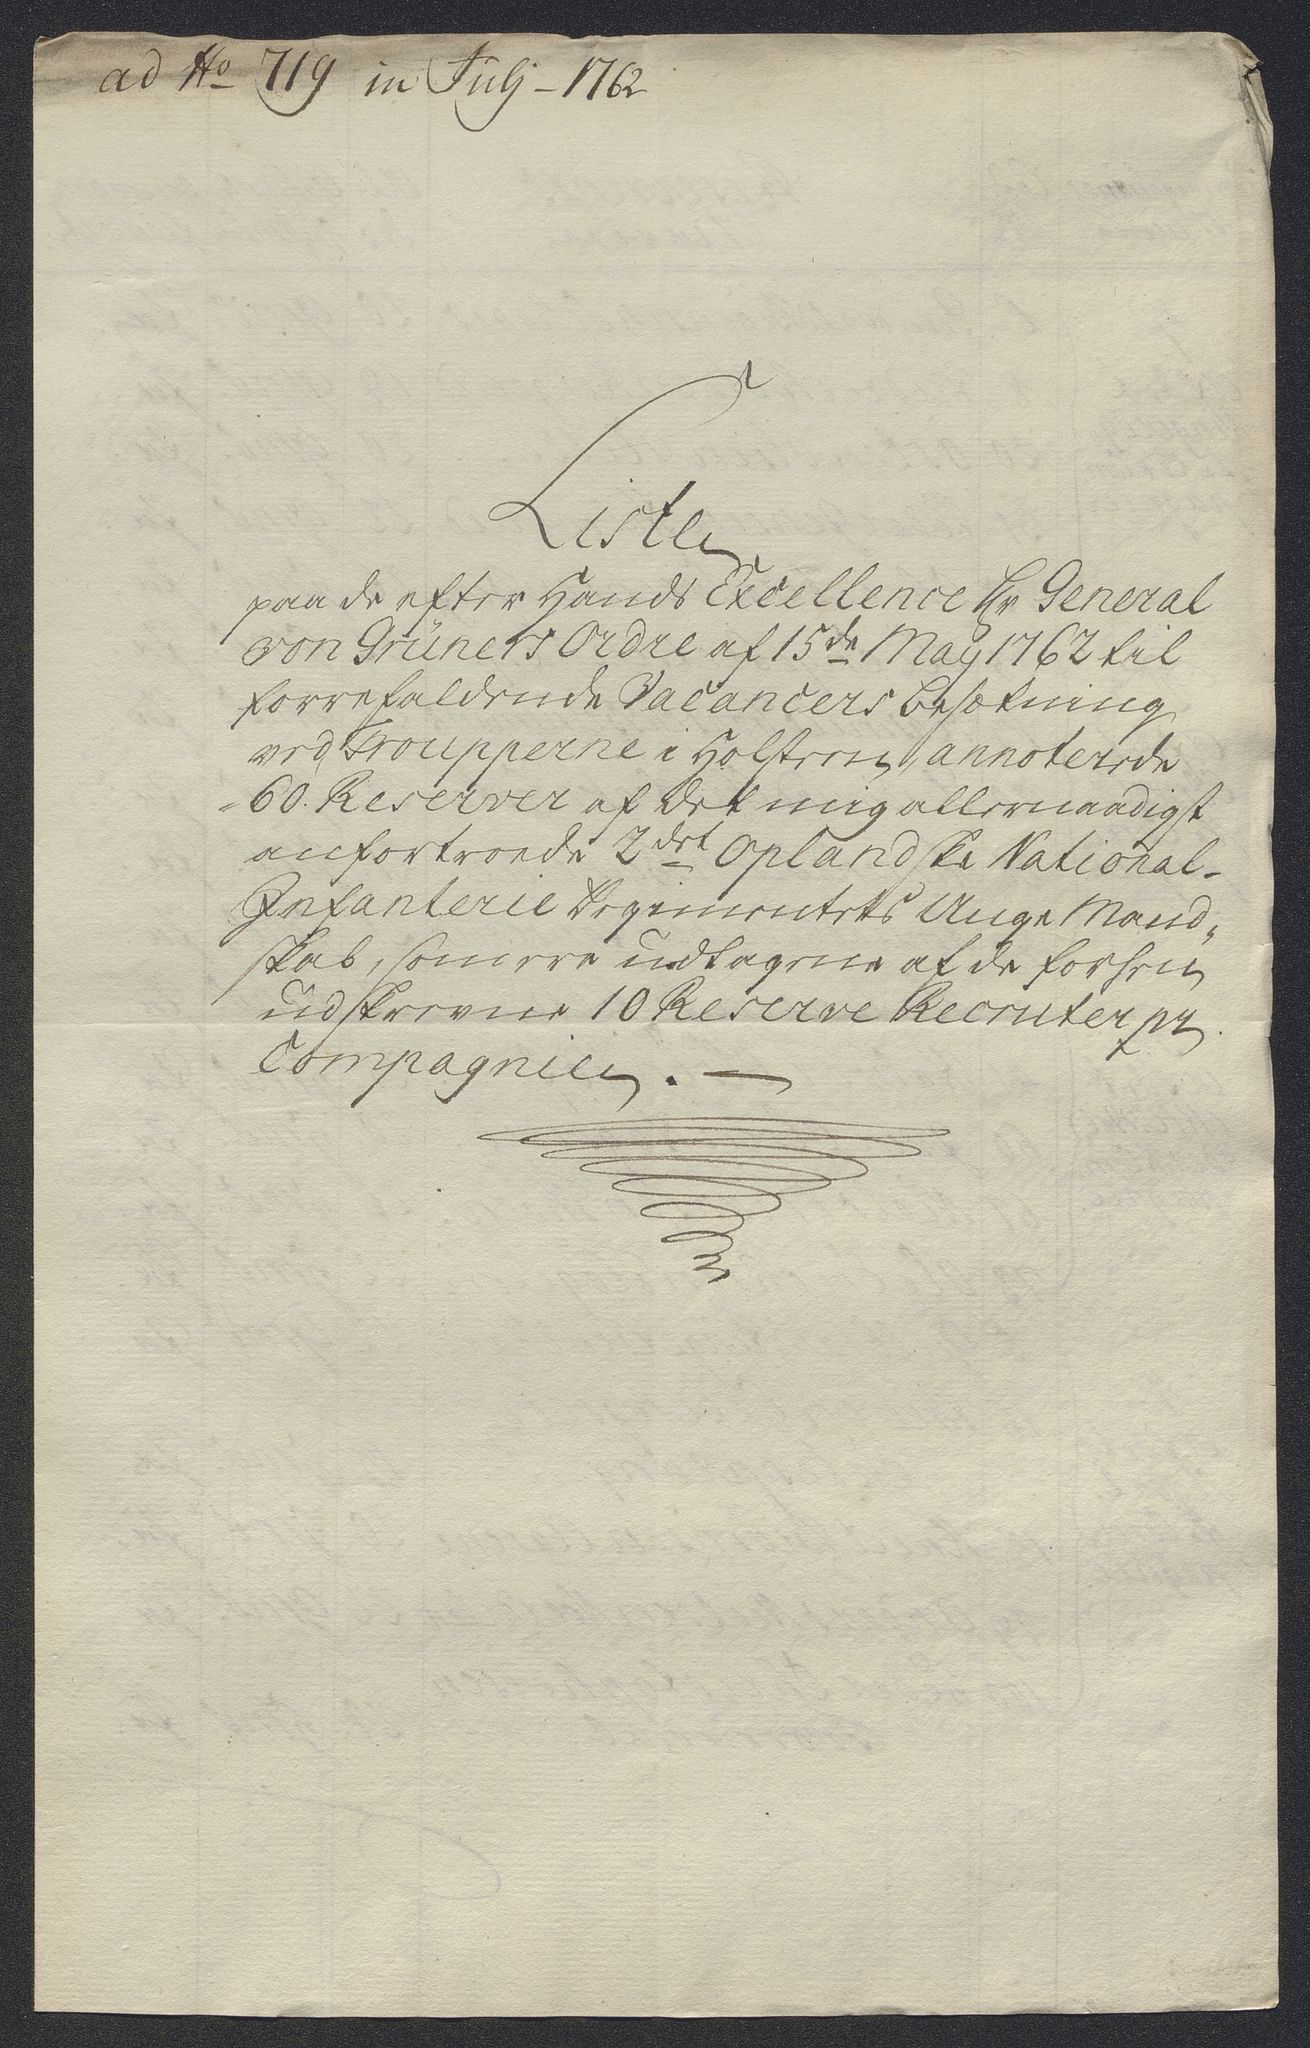 ad No 719 in Julj - 1762
Liste
paa de efter Hands Excellence Hr General
von Grüners Ordre af 15de May 1762 til
forrefaldende Vacancers besætning
ved Troupperne i Holsteen, annoterede
60. Reserver af det mig allernaadigst
anfortroede 2det Oplandske National-
Infanterie Regimentets Unge Mand-
skab, som ere udtagene af de forhen
udskrevne 10 Reserve Recruter pr
Compagnie. —